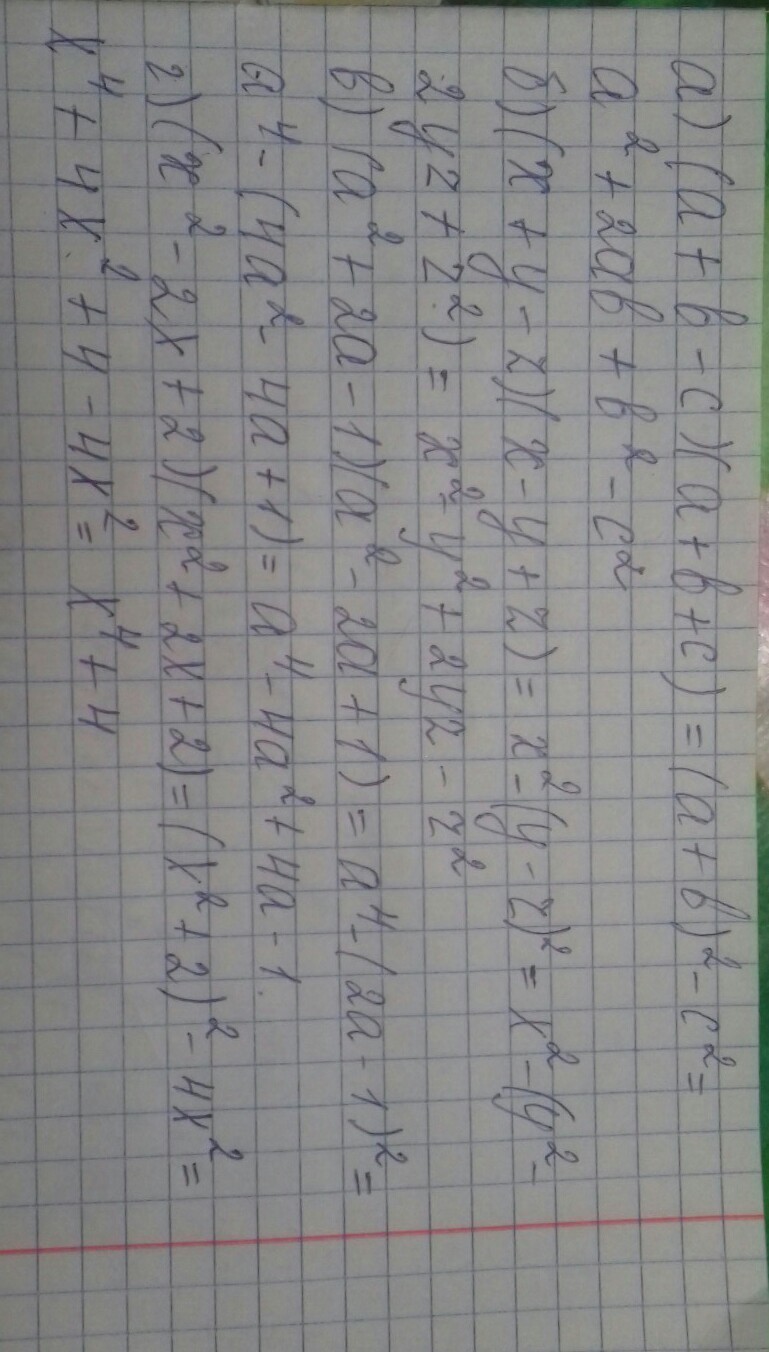 а) (a + b - c)(a + b + c) = (a + b)² - c² =
a² + 2ab + b² - c²
б) (x + y - z)(x - y + z) = x² - (y - z)² = x² - (y² -
2yz + z²) = x² - y² + 2yz - z²
в) (a² + 2a - 1)(a² - 2a + 1) = a⁴ - (2a - 1)² =
a⁴ - (4a² - 4a + 1) = a⁴ - 4a² + 4a - 1.
г) (x² - 2x + 2)(x² + 2x + 2) = (x² + 2)² - 4x² =
x⁴ + 4x² + 4 - 4x² = x⁴ + 4